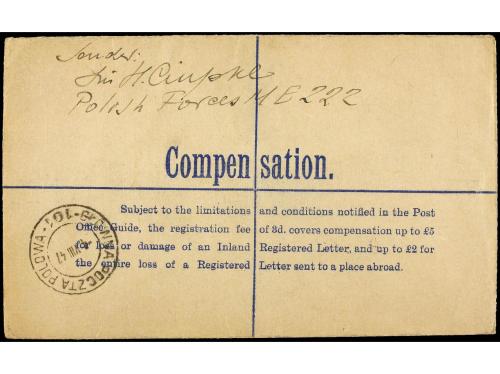 Sender:
H. Ciupkl
Polish Forces M E 222
Compensation.
Subject to the limitations and conditions notified in the Post
Office Guide, the registration fee of 3d. covers compensation up to £5
for loss or damage of an Inland Registered Letter, and up to £2 for
the entire loss of a Registered Letter sent to a place abroad.
POCZTA POLOWA - 101 - GŁÓWNA
VIII 47